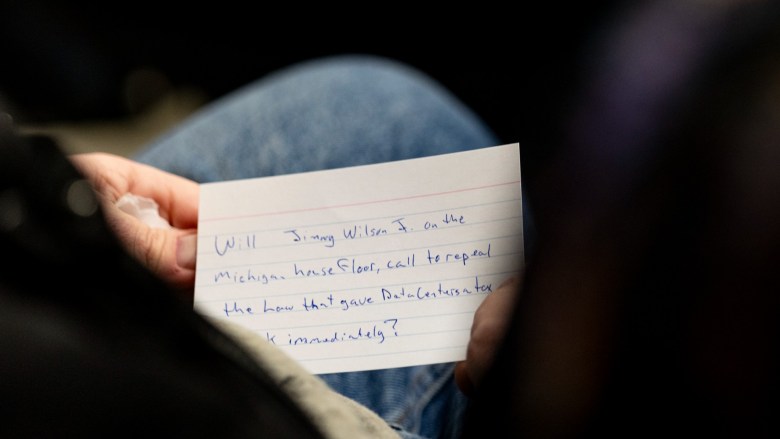 Will Jimmy Wilson Jr. on the
Michigan house Floor, call to repeal
the Law that gave DataCenters a tax
k immediately?